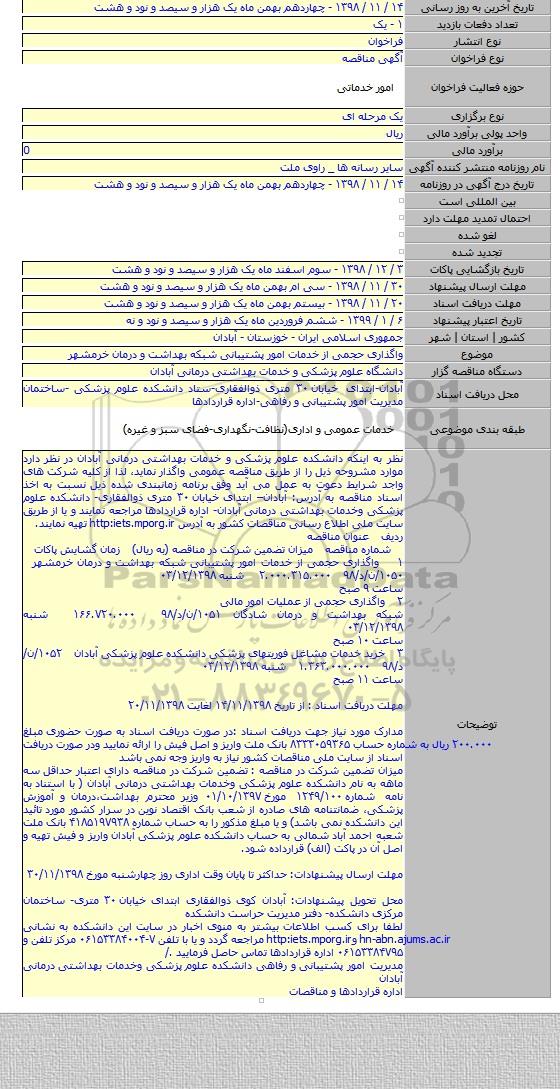 تاریخ آخرین به روز رسانی ۱۴ / ۱۱ / ۱۳۹۸ - چهاردهم بهمن ماه یک هزار و سیصد و نود و هشت
تعداد دفعات بازدید ۱ - یک
نوع انتشار فراخوان
نوع فراخوان آگهی مناقصه
حوزه فعالیت فراخوان امور خدماتی
نوع برگزاری یک مرحله ای
واحد پولی برآورد مالی ریال
برآورد مالی 0
نام روزنامه منتشر کننده آگهی سایر رسانه ها _ راوی ملت
تاریخ درج آگهی در روزنامه ۱۴ / ۱۱ / ۱۳۹۸ - چهاردهم بهمن ماه یک هزار و سیصد و نود و هشت
بین المللی است
احتمال تمدید مهلت دارد
لغو شده
تجدید شده
تاریخ بازگشایی پاکات ۳ / ۱۲ / ۱۳۹۸ - سوم اسفند ماه یک هزار و سیصد و نود و هشت
مهلت ارسال پیشنهاد ۳۰ / ۱۱ / ۱۳۹۸ - سی ام بهمن ماه یک هزار و سیصد و نود و هشت
مهلت دریافت اسناد ۲۰ / ۱۱ / ۱۳۹۸ - بیستم بهمن ماه یک هزار و سیصد و نود و هشت
تاریخ اعتبار پیشنهاد ۶ / ۱ / ۱۳۹۹ - ششم فروردین ماه یک هزار و سیصد و نود و نه
کشور | استان | شهر جمهوری اسلامی ایران - خوزستان - آبادان
موضوع واگذاری حجمی از خدمات امور پشتیبانی شبکه بهداشت و درمان خرمشهر
دستگاه مناقصه گزار دانشگاه علوم پزشکی و خدمات بهداشتی درمانی آبادان
محل دریافت اسناد آبادان-ابتدای خیابان ۳۰ متری ذوالفقاری-ستاد دانشکده علوم پزشکی -ساختمان
مدیریت امور پشتیبانی و رفاهی-اداره قراردادها
طبقه بندی موضوعی خدمات عمومی و اداری(نظافت-نگهداری-فضای سبز و غیره)
توضیحات
نظر به اینکه دانشکده علوم پزشکی و خدمات بهداشتی درمانی آبادان در نظر دارد
موارد مشروحه ذیل را از طریق مناقصه عمومی واگذار نماید، لذا از کلیه شرکت های
واجد شرایط دعوت به عمل می آید وفق برنامه زمانبندی شده ذیل نسبت به اخذ
اسناد مناقصه به آدرس: آبادان– ابتدای خیابان ۳۰ متری ذوالفقاری- دانشکده علوم
پزشکی وخدمات بهداشتی درمانی آبادان- اداره قراردادها مراجعه نمایند و یا از طریق
سایت ملی اطلاع رسانی مناقصات کشور به آدرس http:iets.mporg.ir تهیه نمایند.
ردیف عنوان مناقصه
شماره مناقصه میزان تضمین شرکت در مناقصه (به ریال) زمان گشایش پاکات
۱ واگذاری حجمی از خدمات امور پشتیبانی شبکه بهداشت و درمان خرمشهر
۱۰۵۰/ن/د/۹۸ ۲،۰۰۰،۳۱۵،۰۰۰ شنبه ۰۳/۱۲/۱۳۹۸
ساعت ۹ صبح
۲ واگذاری حجمی از عملیات امور مالی
شبکه بهداشت و درمان شادگان ۱۰۵۱/ن/د/۹۸ ۱۶۶،۷۲۰،۰۰۰ شنبه
۰۳/۱۲/۱۳۹۸
ساعت ۱۰ صبح
۳ خرید خدمات مشاغل فوریتهای پزشکی دانشکده علوم پزشکی آبادان ۱۰۵۲/ن/
د/۹۸ ۱،۲۶۳،۰۰۰،۰۰۰ شنبه ۰۳/۱۲/۱۳۹۸
ساعت ۱۱ صبح
مهلت دریافت اسناد : از تاریخ ۱۴/۱۱/۱۳۹۸ لغایت ۲۰/۱۱/۱۳۹۸
مدارک مورد نیاز جهت دریافت اسناد :در صورت دریافت اسناد به صورت حضوری مبلغ
۲۰۰،۰۰۰ ریال به شماره حساب ۸۳۳۳۰۵۹۲۶۵ بانک ملت واریز و اصل فیش را ارائه نمایید ودر صورت دریافت
اسناد از سایت ملی مناقصات کشور نیاز به واریز وجه نمی باشد
میزان تضمین شرکت در مناقصه : تضمین شرکت در مناقصه دارای اعتبار حداقل سه
ماهه به نام دانشکده علوم پزشکی وخدمات بهداشتی درمانی آبادان ( با استناد به
نامه شماره ۱۲۴۹/۱۰۰ مورخ ۰۱/۱۰/۱۳۹۷ وزیر محترم بهداشت،درمان و آموزش
پزشکی، ضمانتنامه های صادره از شعب بانک اقتصاد نوین در سرار کشور مورد تائید
این دانشکده نمی باشد) و یا مبلغ مذکور را به حساب شماره ۴۱۸۵۱۹۷۹۳۸ بانک ملت
شعبه احمد آباد شمالی به حساب دانشکده علوم پزشکی آبادان واریز و فیش تهیه و
اصل آن در پاکت (الف) قرارداده شود.
مهلت ارسال پیشنهادات: حداکثر تا پایان وقت اداری روز چهارشنبه مورخ ۳۰/۱۱/۱۳۹۸
محل تحویل پیشنهادات: آبادان کوی ذوالفقاری ابتدای خیابان ۳۰ متری- ساختمان
مرکزی دانشکده- دفتر مدیریت حراست دانشکده
لطفا برای کسب اطلاعات بیشتر به منوی اخبار در سایت این دانشکده به نشانی
http:iets.mporg.irو hn-abn.ajums.ac.ir مراجعه گردد و یا با تلفن ۷-۰۶۱۵۳۳۸۴۰۰۴ مرکز تلفن و
۰۶۱۵۳۳۸۴۷۹۵ اداره قراردادها تماس حاصل فرمایید ./
مدیریت امور پشتیبانی و رفاهی دانشکده علوم پزشکی وخدمات بهداشتی درمانی
آبادان
اداره قراردادها و مناقصات
ParsNamadData
۰۲۱-۸۸۳۴۹۶۷۰-۵